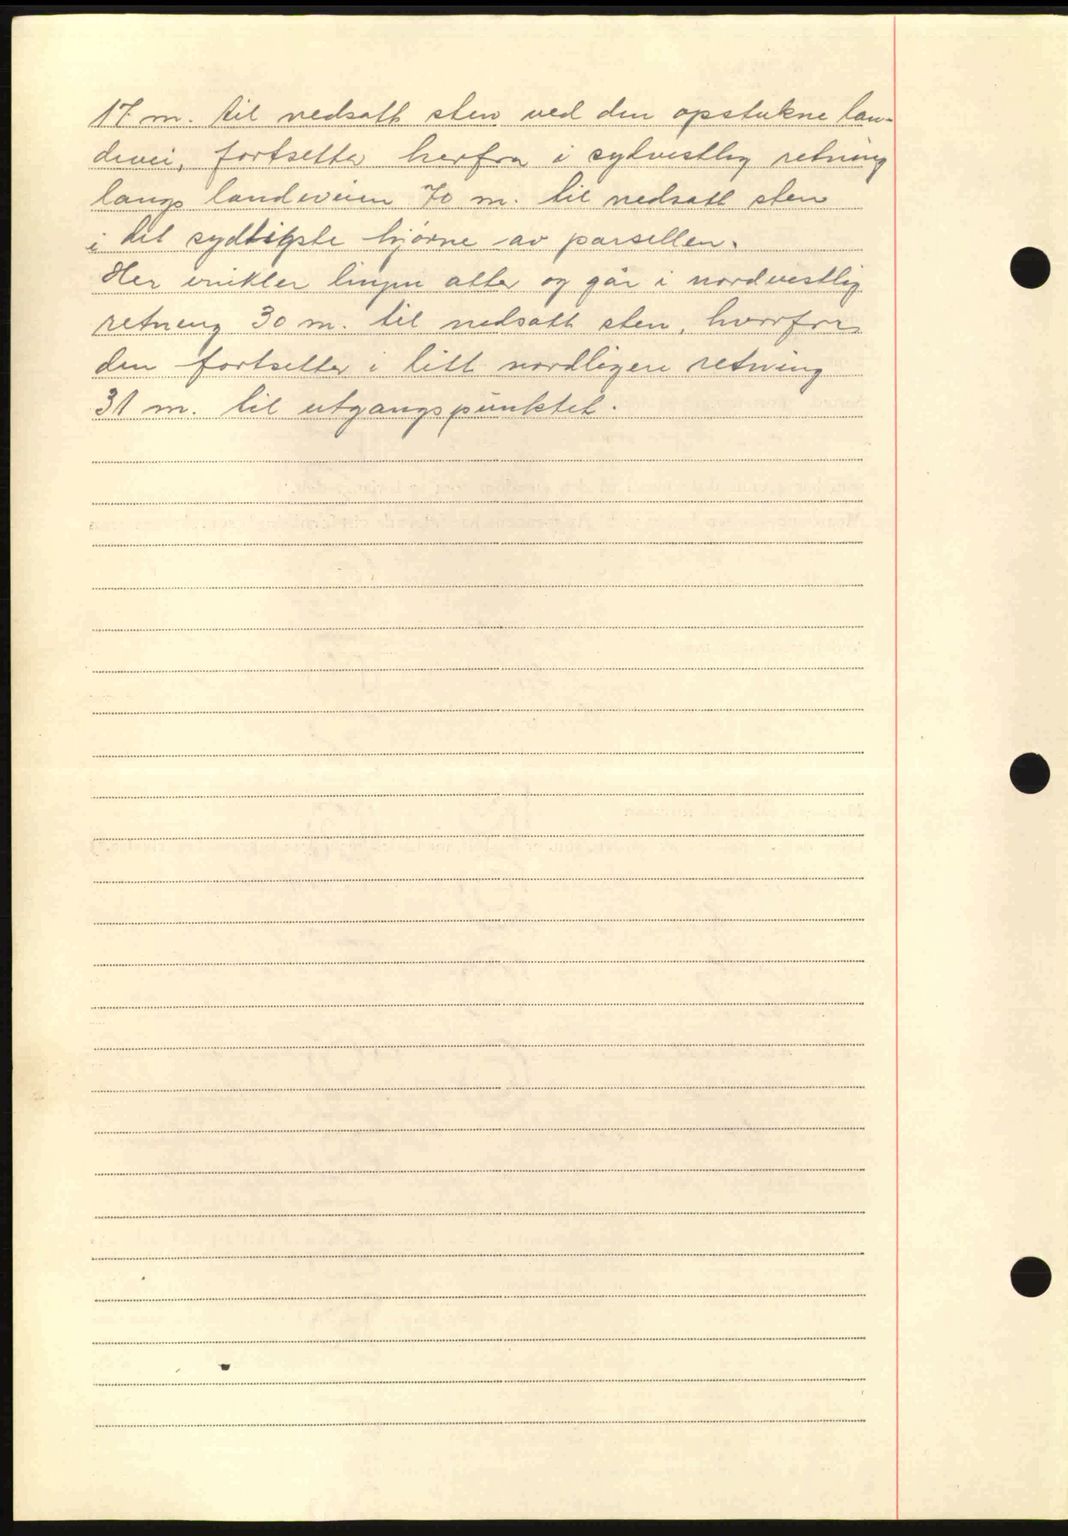 17 m. til nedsatt sten ved den opstukne lan-
devei, fortsetter herfra i sydvestlig retning
langs landeveien 70 m. til nedsatt sten
i det sydligste hjørne av parsellen.
Her vinkler linjen atter og går i nordvestlig
retning 30 m. til nedsatt sten, hvorfra
den fortsetter i litt nordligere retning
31 m. til utgangspunktet.